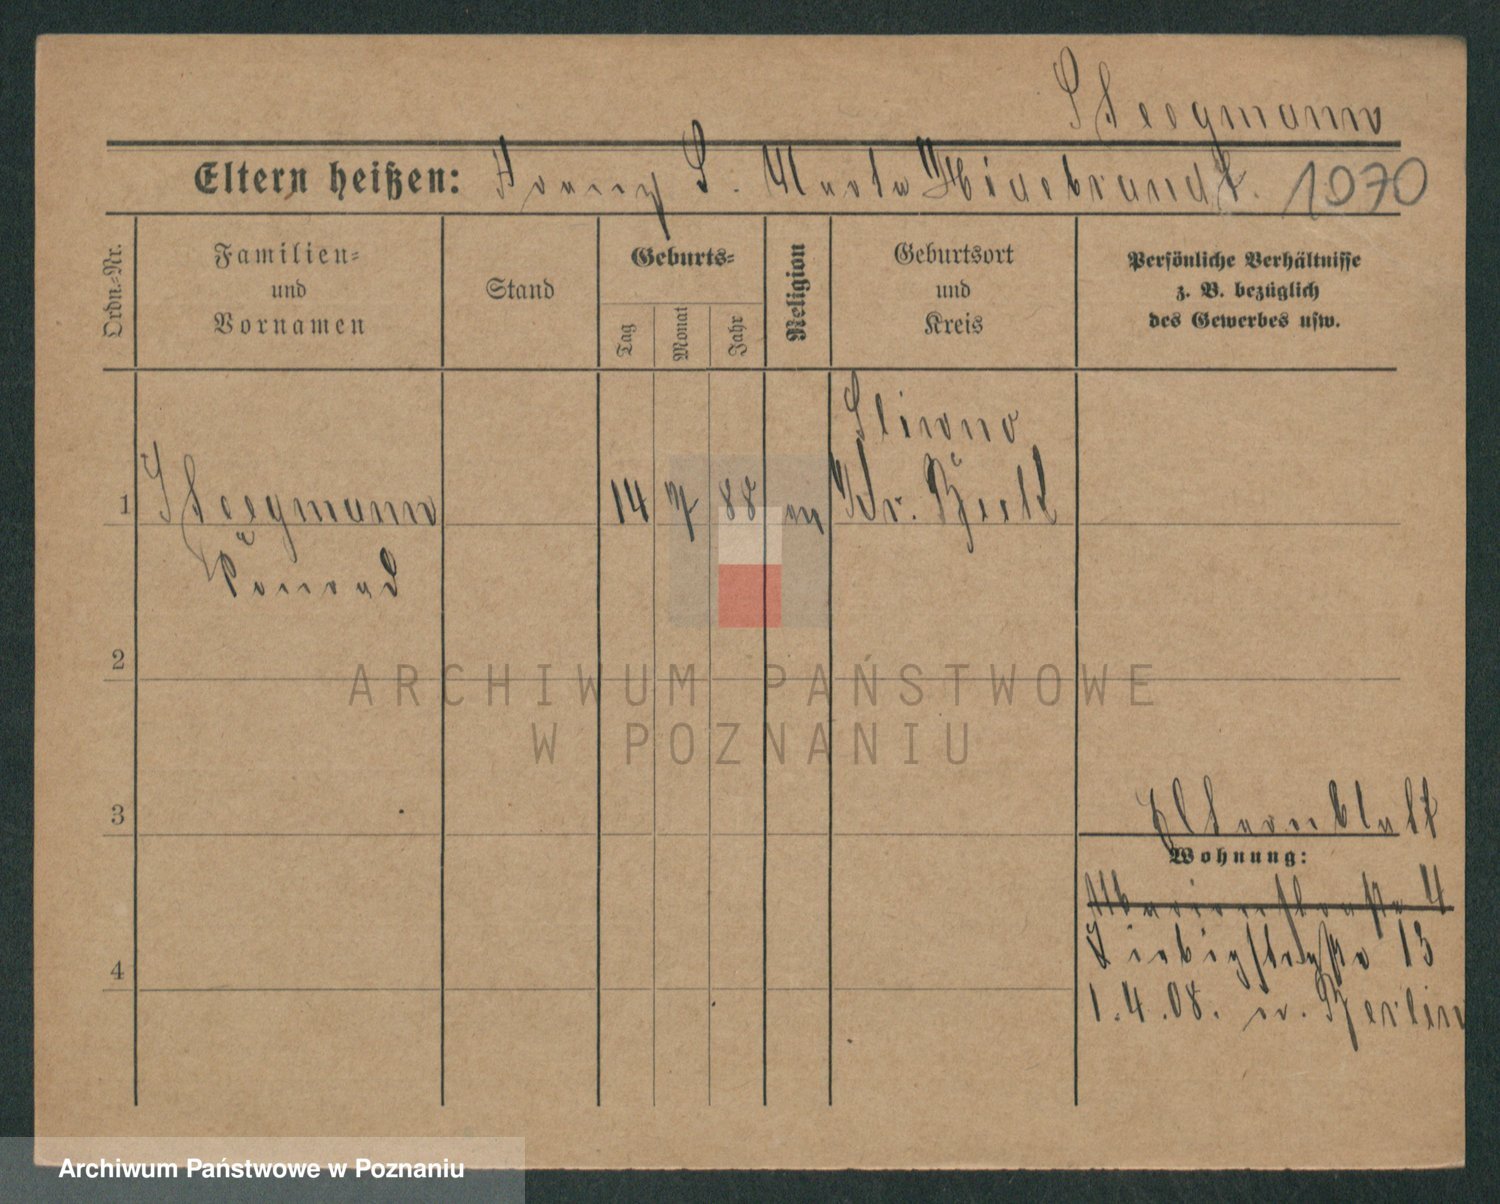 Stoegmann
Eltern heißen: Franz S. Marta Hildebrandt. 1970
Ordn.-Nr.
Familien- und Vornamen
Stand
Geburts-
Tag
Monat
Jahr
Religion
Geburtsort und Kreis
Persönliche Verhältnisse
z. B. bezüglich
des Gewerbes usw.
Sliwno
1 Stoegmann 14 7 88 ev Kr.
Konrad
2
3
4
Elternblatt
Wohnung:
4
Liebigstraße 13
1.4.08. n. Berlin
ARCHIWUM PAŃSTWOWE
W POZNANIU
Archiwum Państwowe w Poznaniu